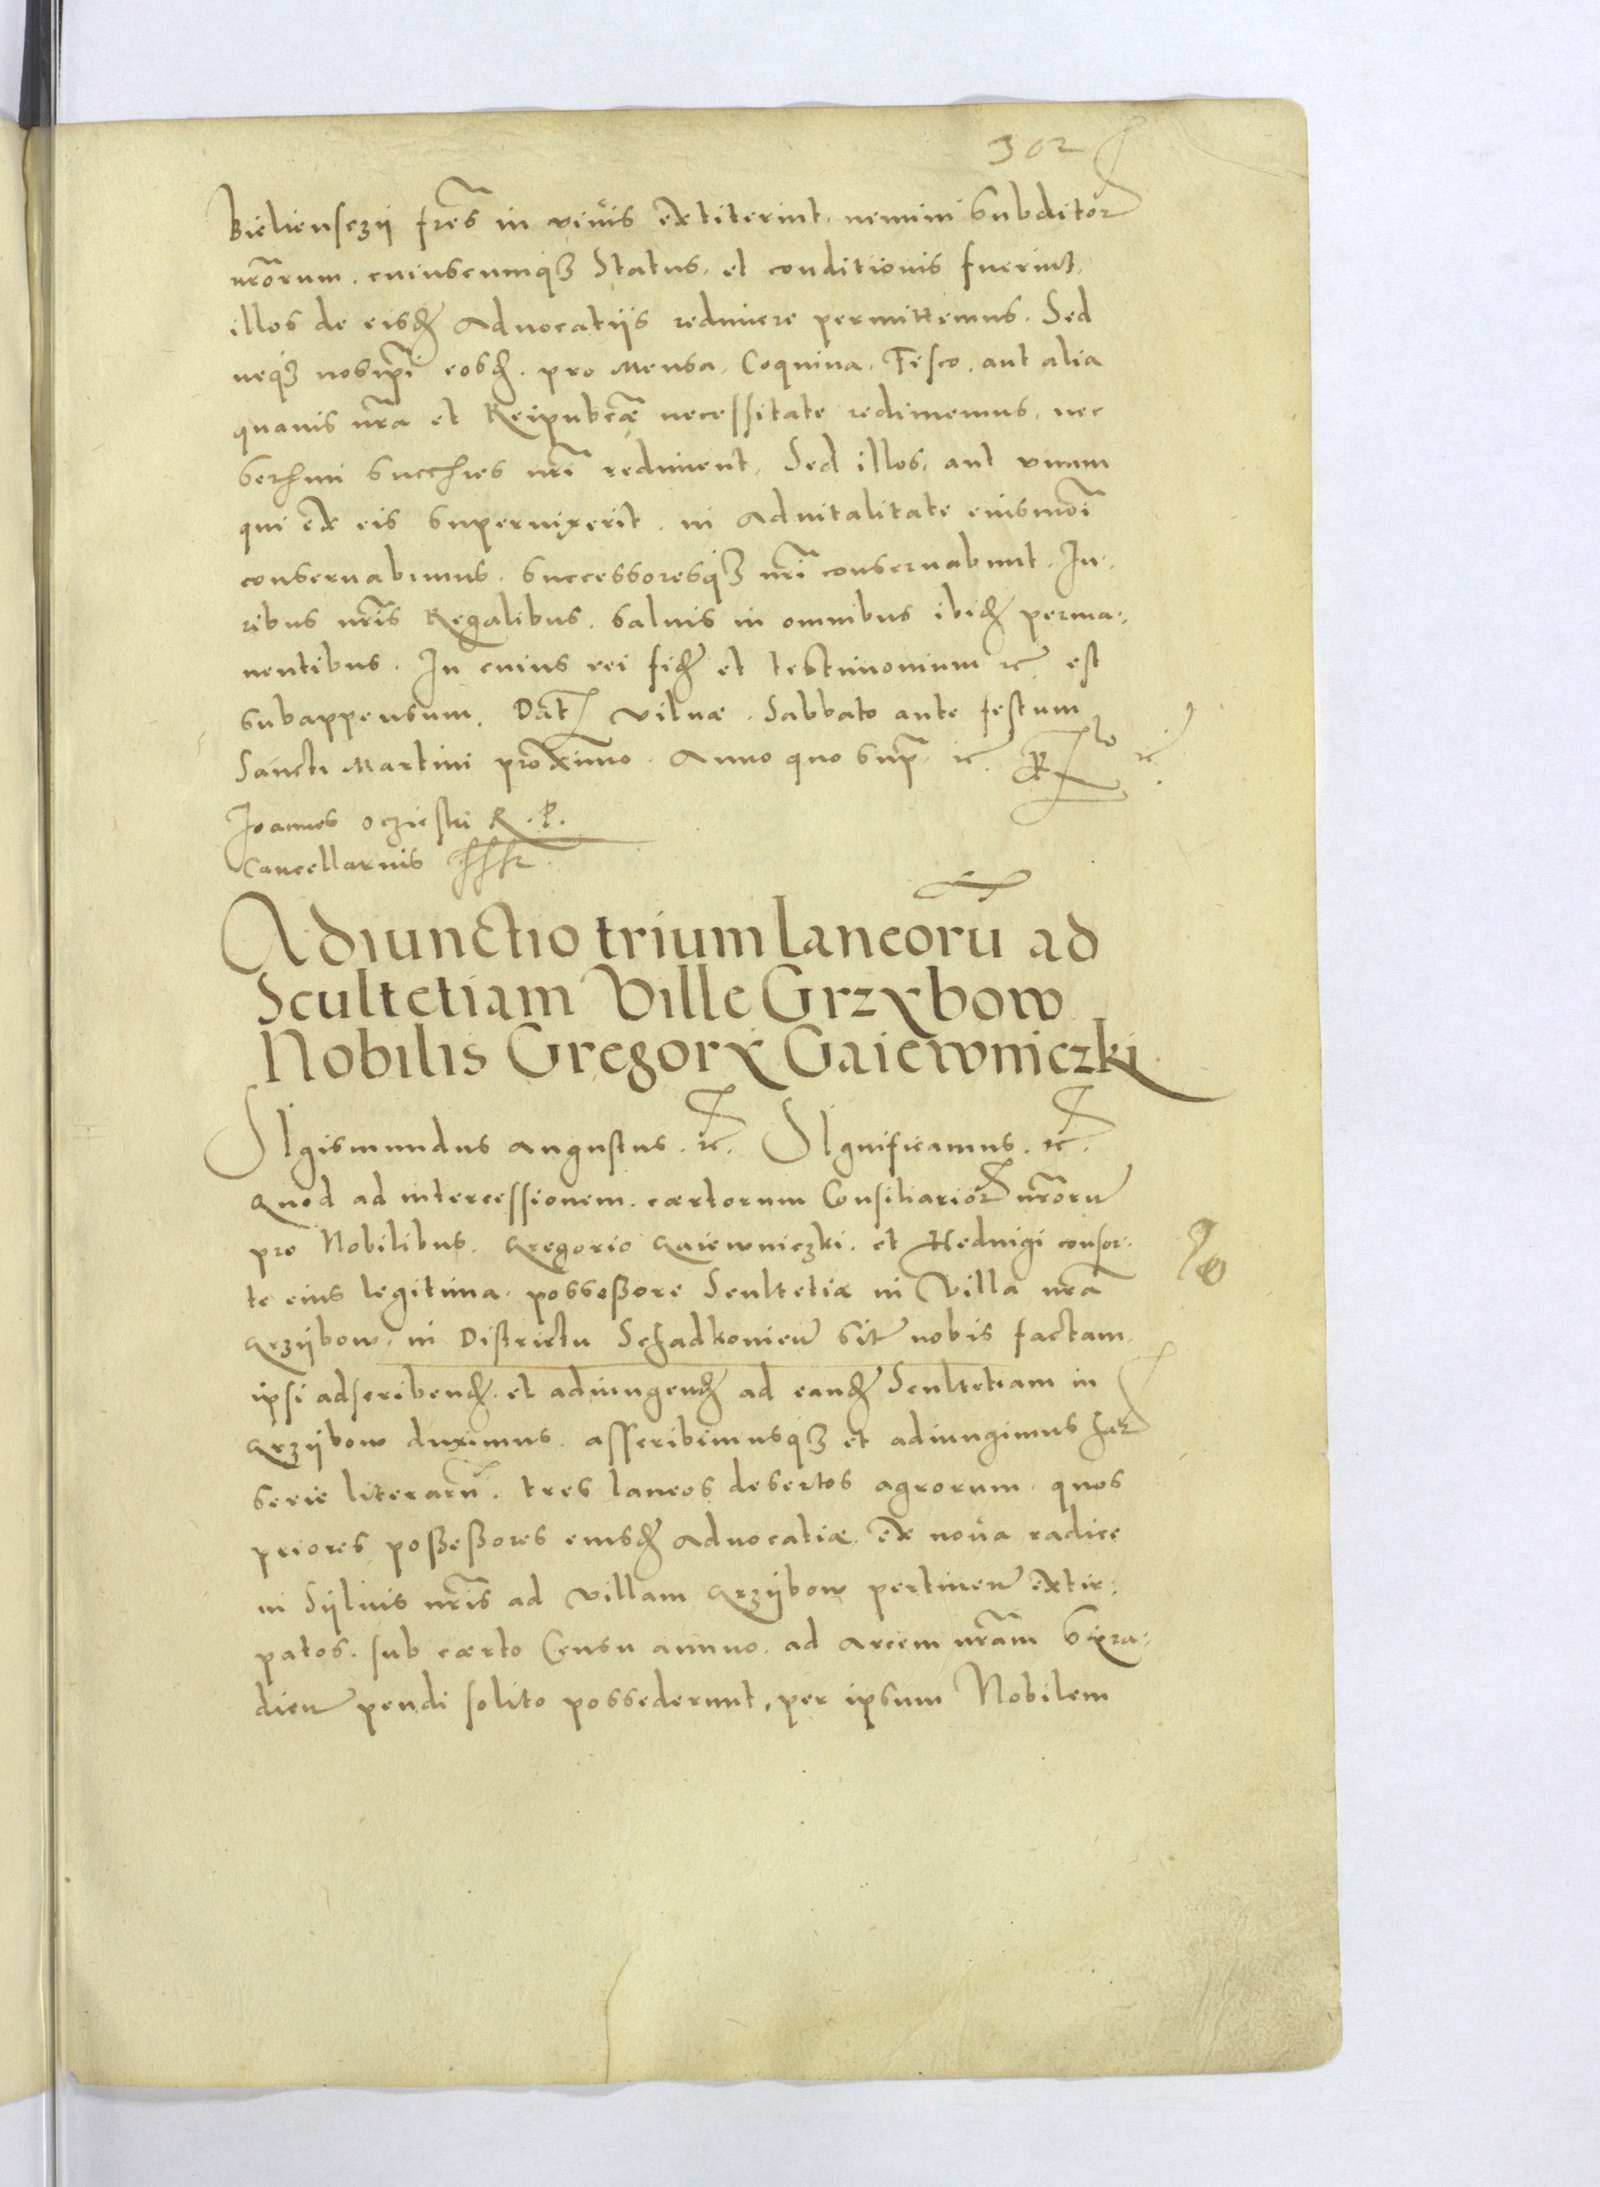 302
Bieliensczÿ fr̃es in vivis extiterint, nemini Subditor̃
nr̃orum. cuiuscumq3 Status, et conditionis fuerint,
illos de eisđ Aduocatÿs redimere permittemus. Sed
neq3 nosip̃i eosđ. pro Mensa, Coquina, Fisco, aut alia
quauis nr̃a et Reipubcæ̃ necessitate redimemus, nec
Ser̃mi Succ̃res nr̃i rediment, Sed illos, aut vnum
qui ex eis superuixerit, in Aduitalitate eiusmõi
conseruabimus. Successoresq3 nr̃i conseruabunt. Iu-
ribus nr̃is Regalibus, saluis in omnibus ibiđ perma-
nentibus. In cuius rei fiđ et testimonium etc̃ est
subappensum. Dat̃ Vilnæ. Sabbato ante festum
Sancti Martini prõximo. Anno quo supr̃ etc.
Joannes Oczieski R. P.
Cancellarius
Adiunctio trium laneorũ ad
Scultetiam Ville Grzybow
Nobilis Gregory Gaiewniczki.
SIgismundus Augustus. etc. SIgnificamus. etc.
Quod ad intercessionem. cærtorum Consiliarior̃ nr̃orũ
pro Nobilibus. Gregorio Gaiewniczki. et Heduigi consor-
te eius legitima. possessore Scultetiæ in Villa nr̃a
Grzÿbow. in Districtu Schadkonieñ sit̃ nobis factam.
ipsi adscribenđ. et adiungenđ ad eanđ Scultetiam in
Grzÿbow duximus. asscribimusq3 et adiungimus har̃
serie literarũ. tres laneos desertos agrorum. quos
priores possessores eiusđ Aduocatiæ. ex noua radice
in Sÿluis nr̃is ad Villam Grzÿbow pertineñ extir-
patos. sub cærto Censu annuo. ad Arcem nr̃am Sÿra-
dieñ pendi solito possederunt, per ipsum Nobilem